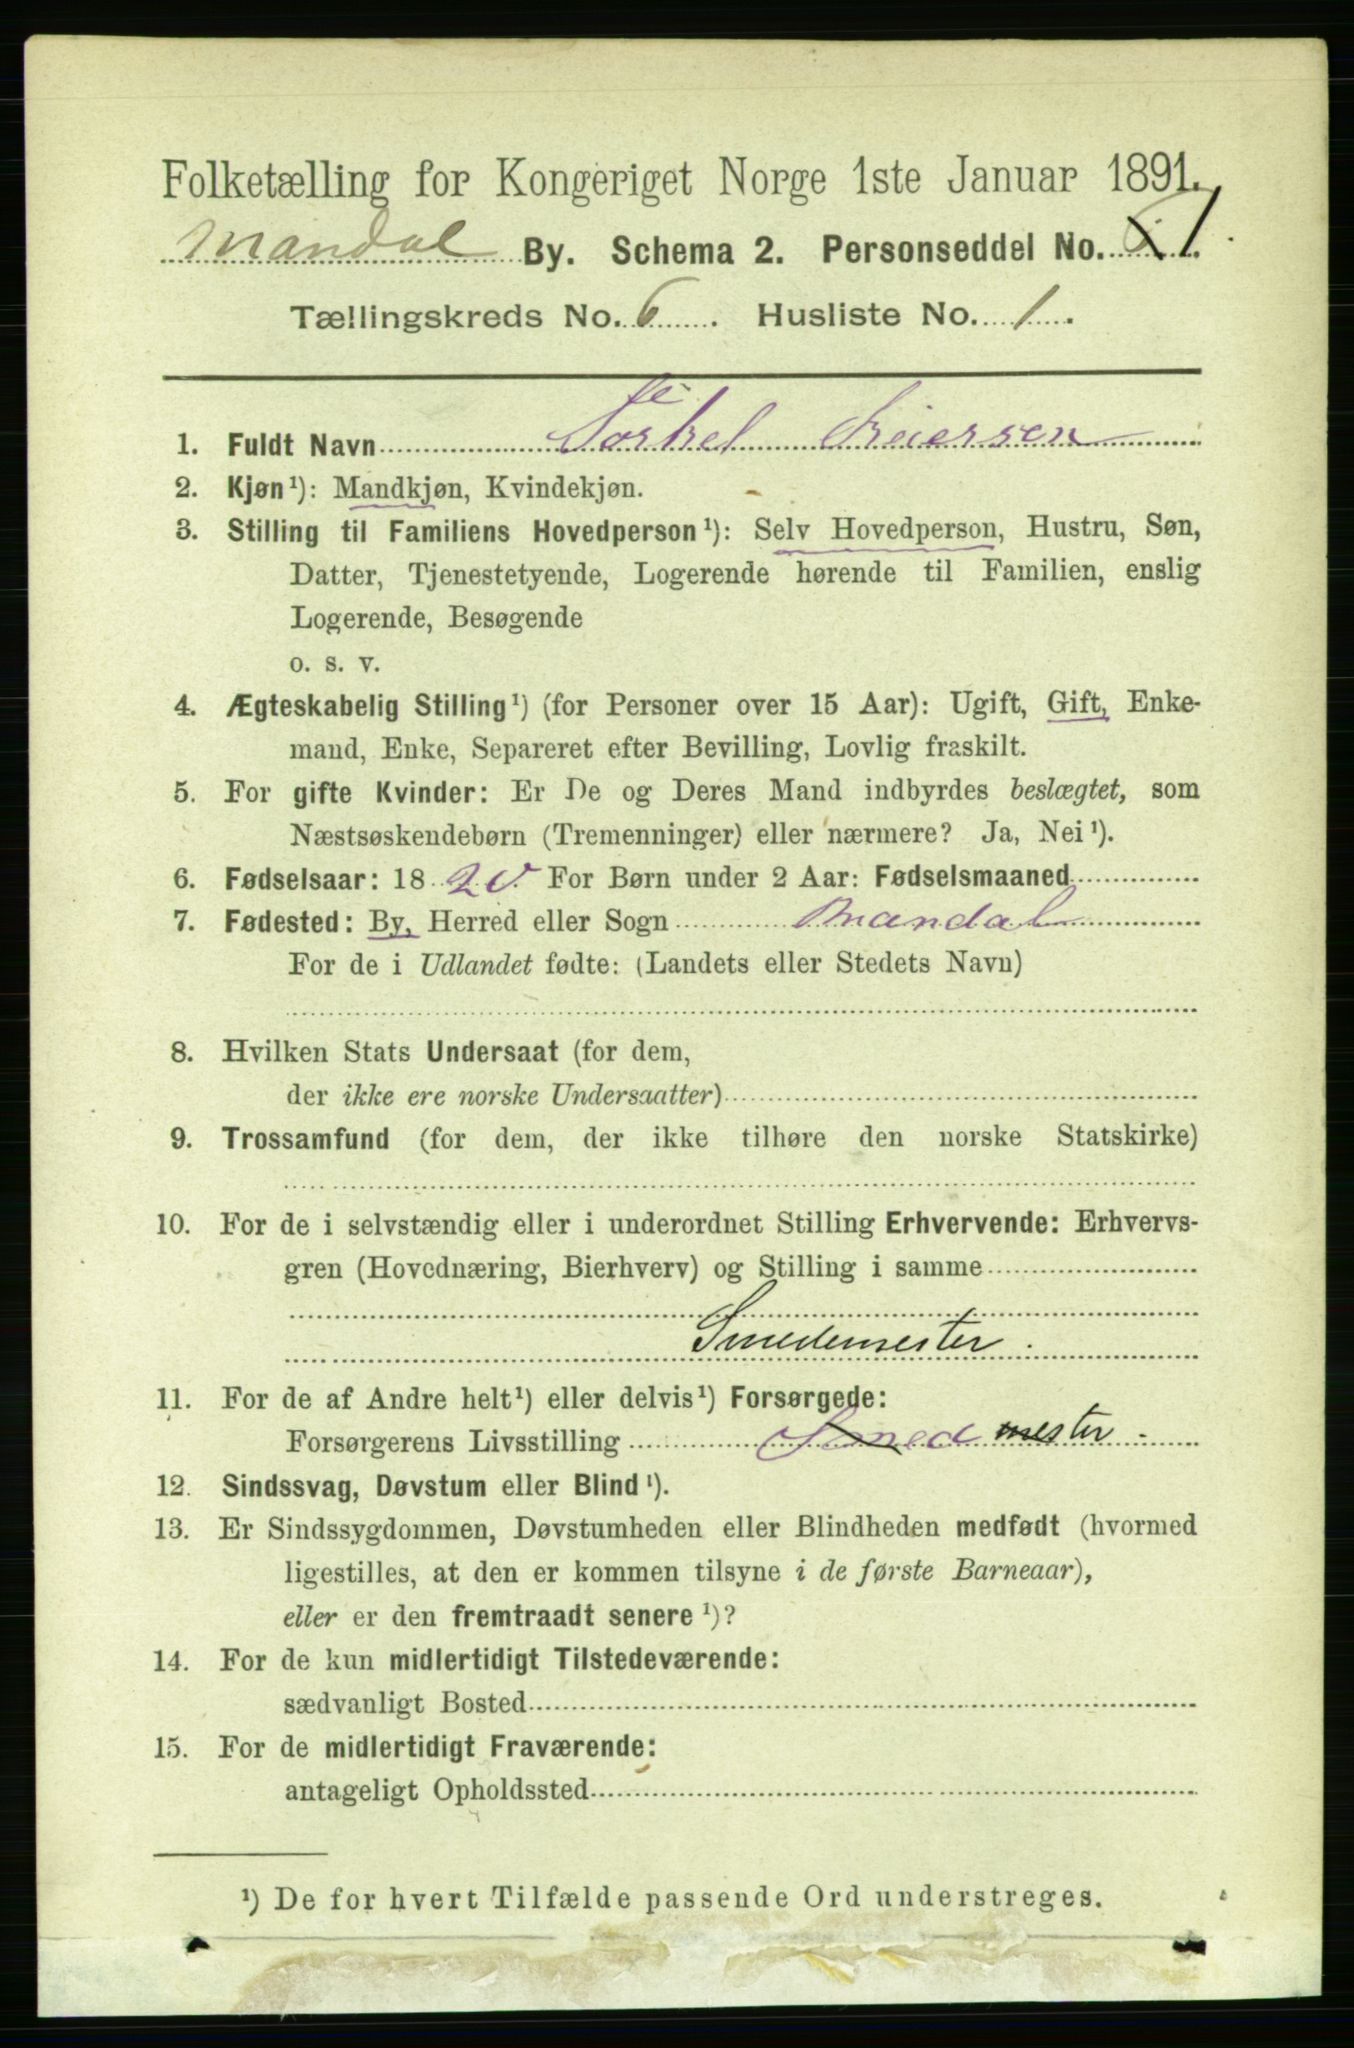 Folketælling for Kongeriget Norge 1ste Januar 1891.
Mandal By. Schema 2. Personseddel No. 1.
Tællingskreds No. 6. Husliste No. 1.
1. Fuldt Navn Torkel Reiersen
2. Kjøn¹): Mandkjøn, Kvindekjøn.
3. Stilling til Familiens Hovedperson¹): Selv Hovedperson, Hustru, Søn,
Datter, Tjenestetyende, Logerende hørende til Familien, enslig
Logerende, Besøgende
o. s. v.
4. Ægteskabelig Stilling¹) (for Personer over 15 Aar): Ugift, Gift, Enke-
mand, Enke, Separeret efter Bevilling, Lovlig fraskilt.
5. For gifte Kvinder: Er De og Deres Mand indbyrdes beslægtet, som
Næstsøskendebørn (Tremenninger) eller nærmere? Ja, Nei¹).
6. Fødselsaar: 1820. For Børn under 2 Aar: Fødselsmaaned
7. Fødested: By, Herred eller Sogn Mandal
For de i Udlandet fødte: (Landets eller Stedets Navn)
8. Hvilken Stats Undersaat (for dem,
der ikke ere norske Undersaatter)
9. Trossamfund (for dem, der ikke tilhøre den norske Statskirke)
10. For de i selvstændig eller i underordnet Stilling Erhvervende: Erhvervs-
gren (Hovednæring, Bierhverv) og Stilling i samme
Smedemester.
11. For de af Andre helt¹) eller delvis¹) Forsørgede:
Forsørgerens Livsstilling Smedmester.
12. Sindssvag, Døvstum eller Blind¹).
13. Er Sindssygdommen, Døvstumheden eller Blindheden medfødt (hvormed
ligestilles, at den er kommen tilsyne i de første Barneaar),
eller er den fremtraadt senere¹)?
14. For de kun midlertidigt Tilstedeværende:
sædvanligt Bosted
15. For de midlertidigt Fraværende:
antageligt Opholdssted
¹) De for hvert Tilfælde passende Ord understreges.